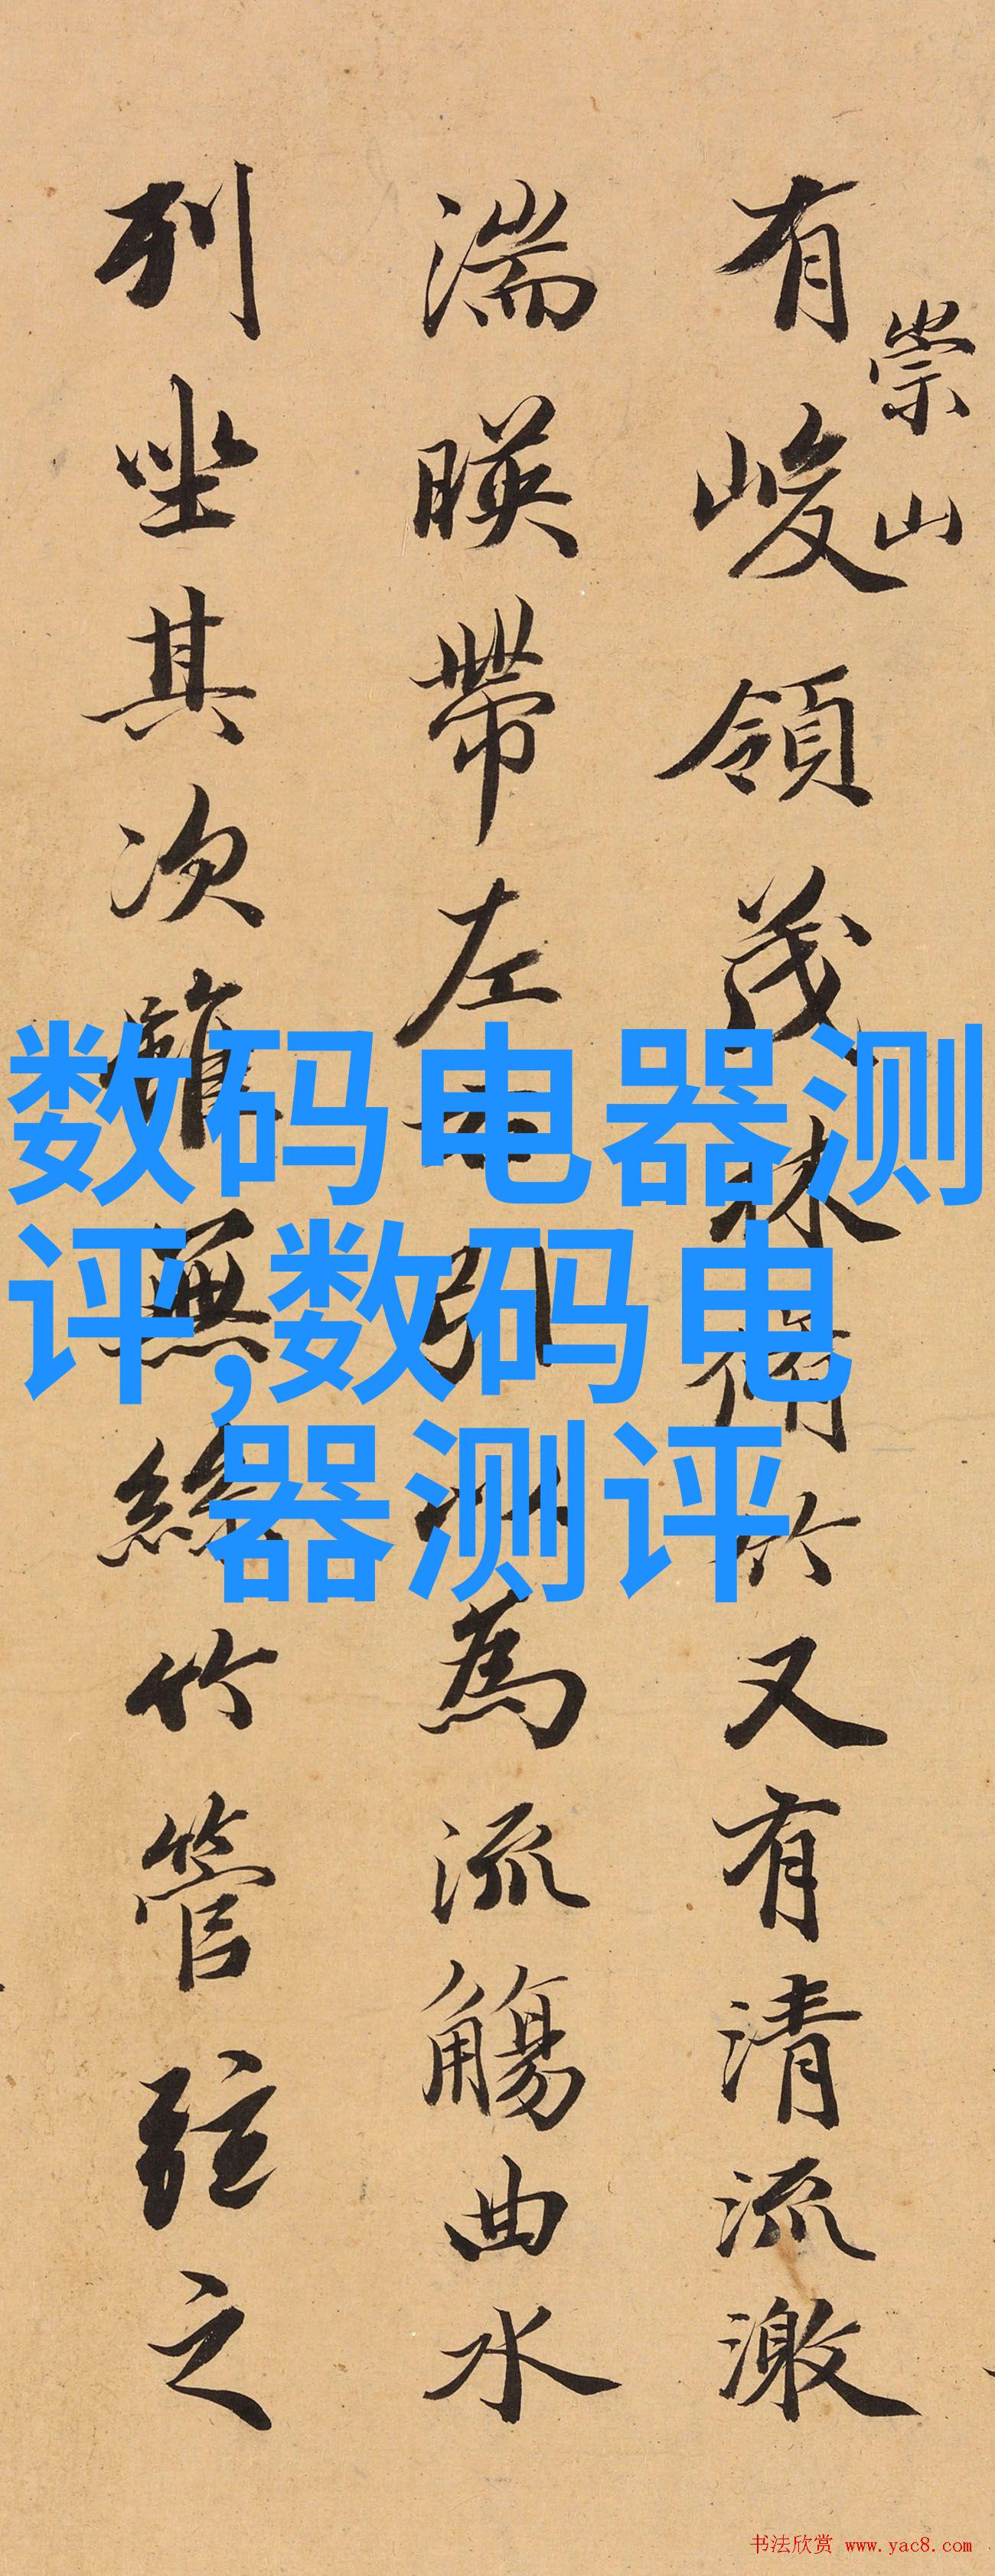 崇山
有峻領茂林脩竹又有清流激
湍暎帶左右引以為流觴曲水
列坐其次雖無絲竹管弦之
数码电器测
评,数码电
器测评
书法欣赏 www.yac8.com